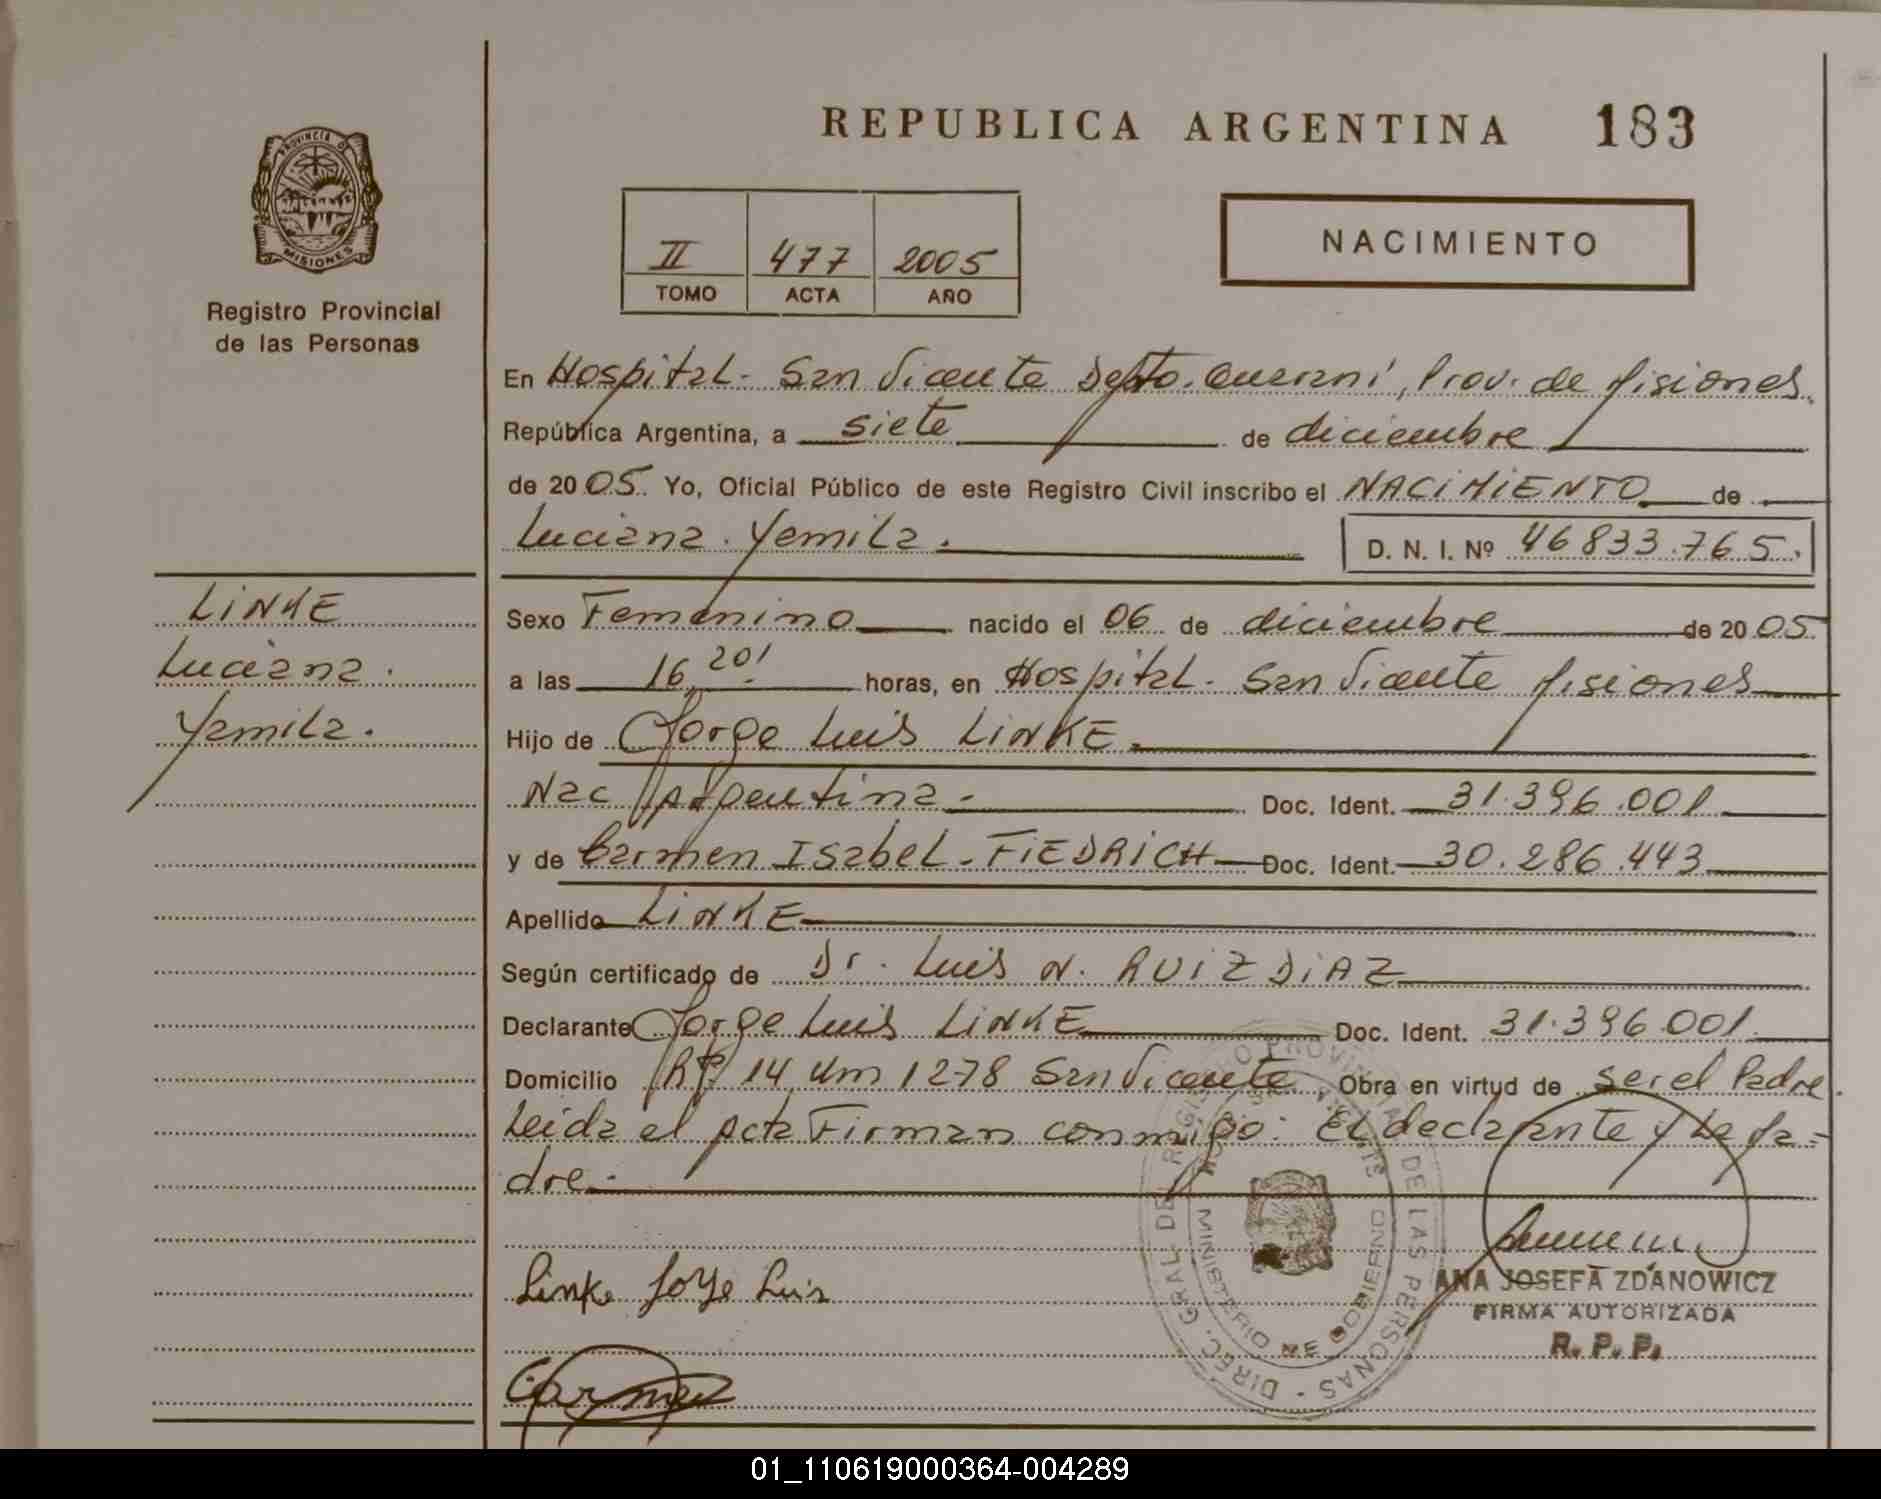 REPUBLICA ARGENTINA 183
PROVINCIA D
MISIONES
Registro Provincial
de las Personas
II 477 2005
TOMO ACTA AÑO
NACIMIENTO
En Hospital - San Vicente Depto. Guaraní, Prov. de Misiones.
República Argentina, a siete de diciembre
de 2005. Yo, Oficial Público de este Registro Civil inscribo el NACIMIENTO de
Luciana Yamila. D. N. I. Nº 46833.765.
LINKE
Luciana.
Yamila.
Sexo Femenino nacido el 06 de diciembre de 2005
a las 16,20' horas, en Hospital - San Vicente Misiones
Hijo de Jorge Luis LINKE.
Nac Argentina - Doc. Ident. 31.396.001
y de Carmen Isabel - FIEDRICH Doc. Ident. 30.286.443
Apellido LINKE
Según certificado de Dr. Luis N. RUIZ DIAZ
Declarante Jorge Luis LINKE Doc. Ident. 31.396.001.
Domicilio 14 Km 1278 San Vicente Obra en virtud de ser el Padre.
Leida el Acta Firman conmigo: El declarante y La Ma-
dre.-
Linke Jorge Luis
Carmen
DIREC. GRAL. DEL REGISTRO PROVINCIAL DE LAS PERSONAS -
MINISTERIO DE GOBIERNO
ANA JOSEFA ZDANOWICZ
FIRMA AUTORIZADA
R. P. P.
01_110619000364-004289